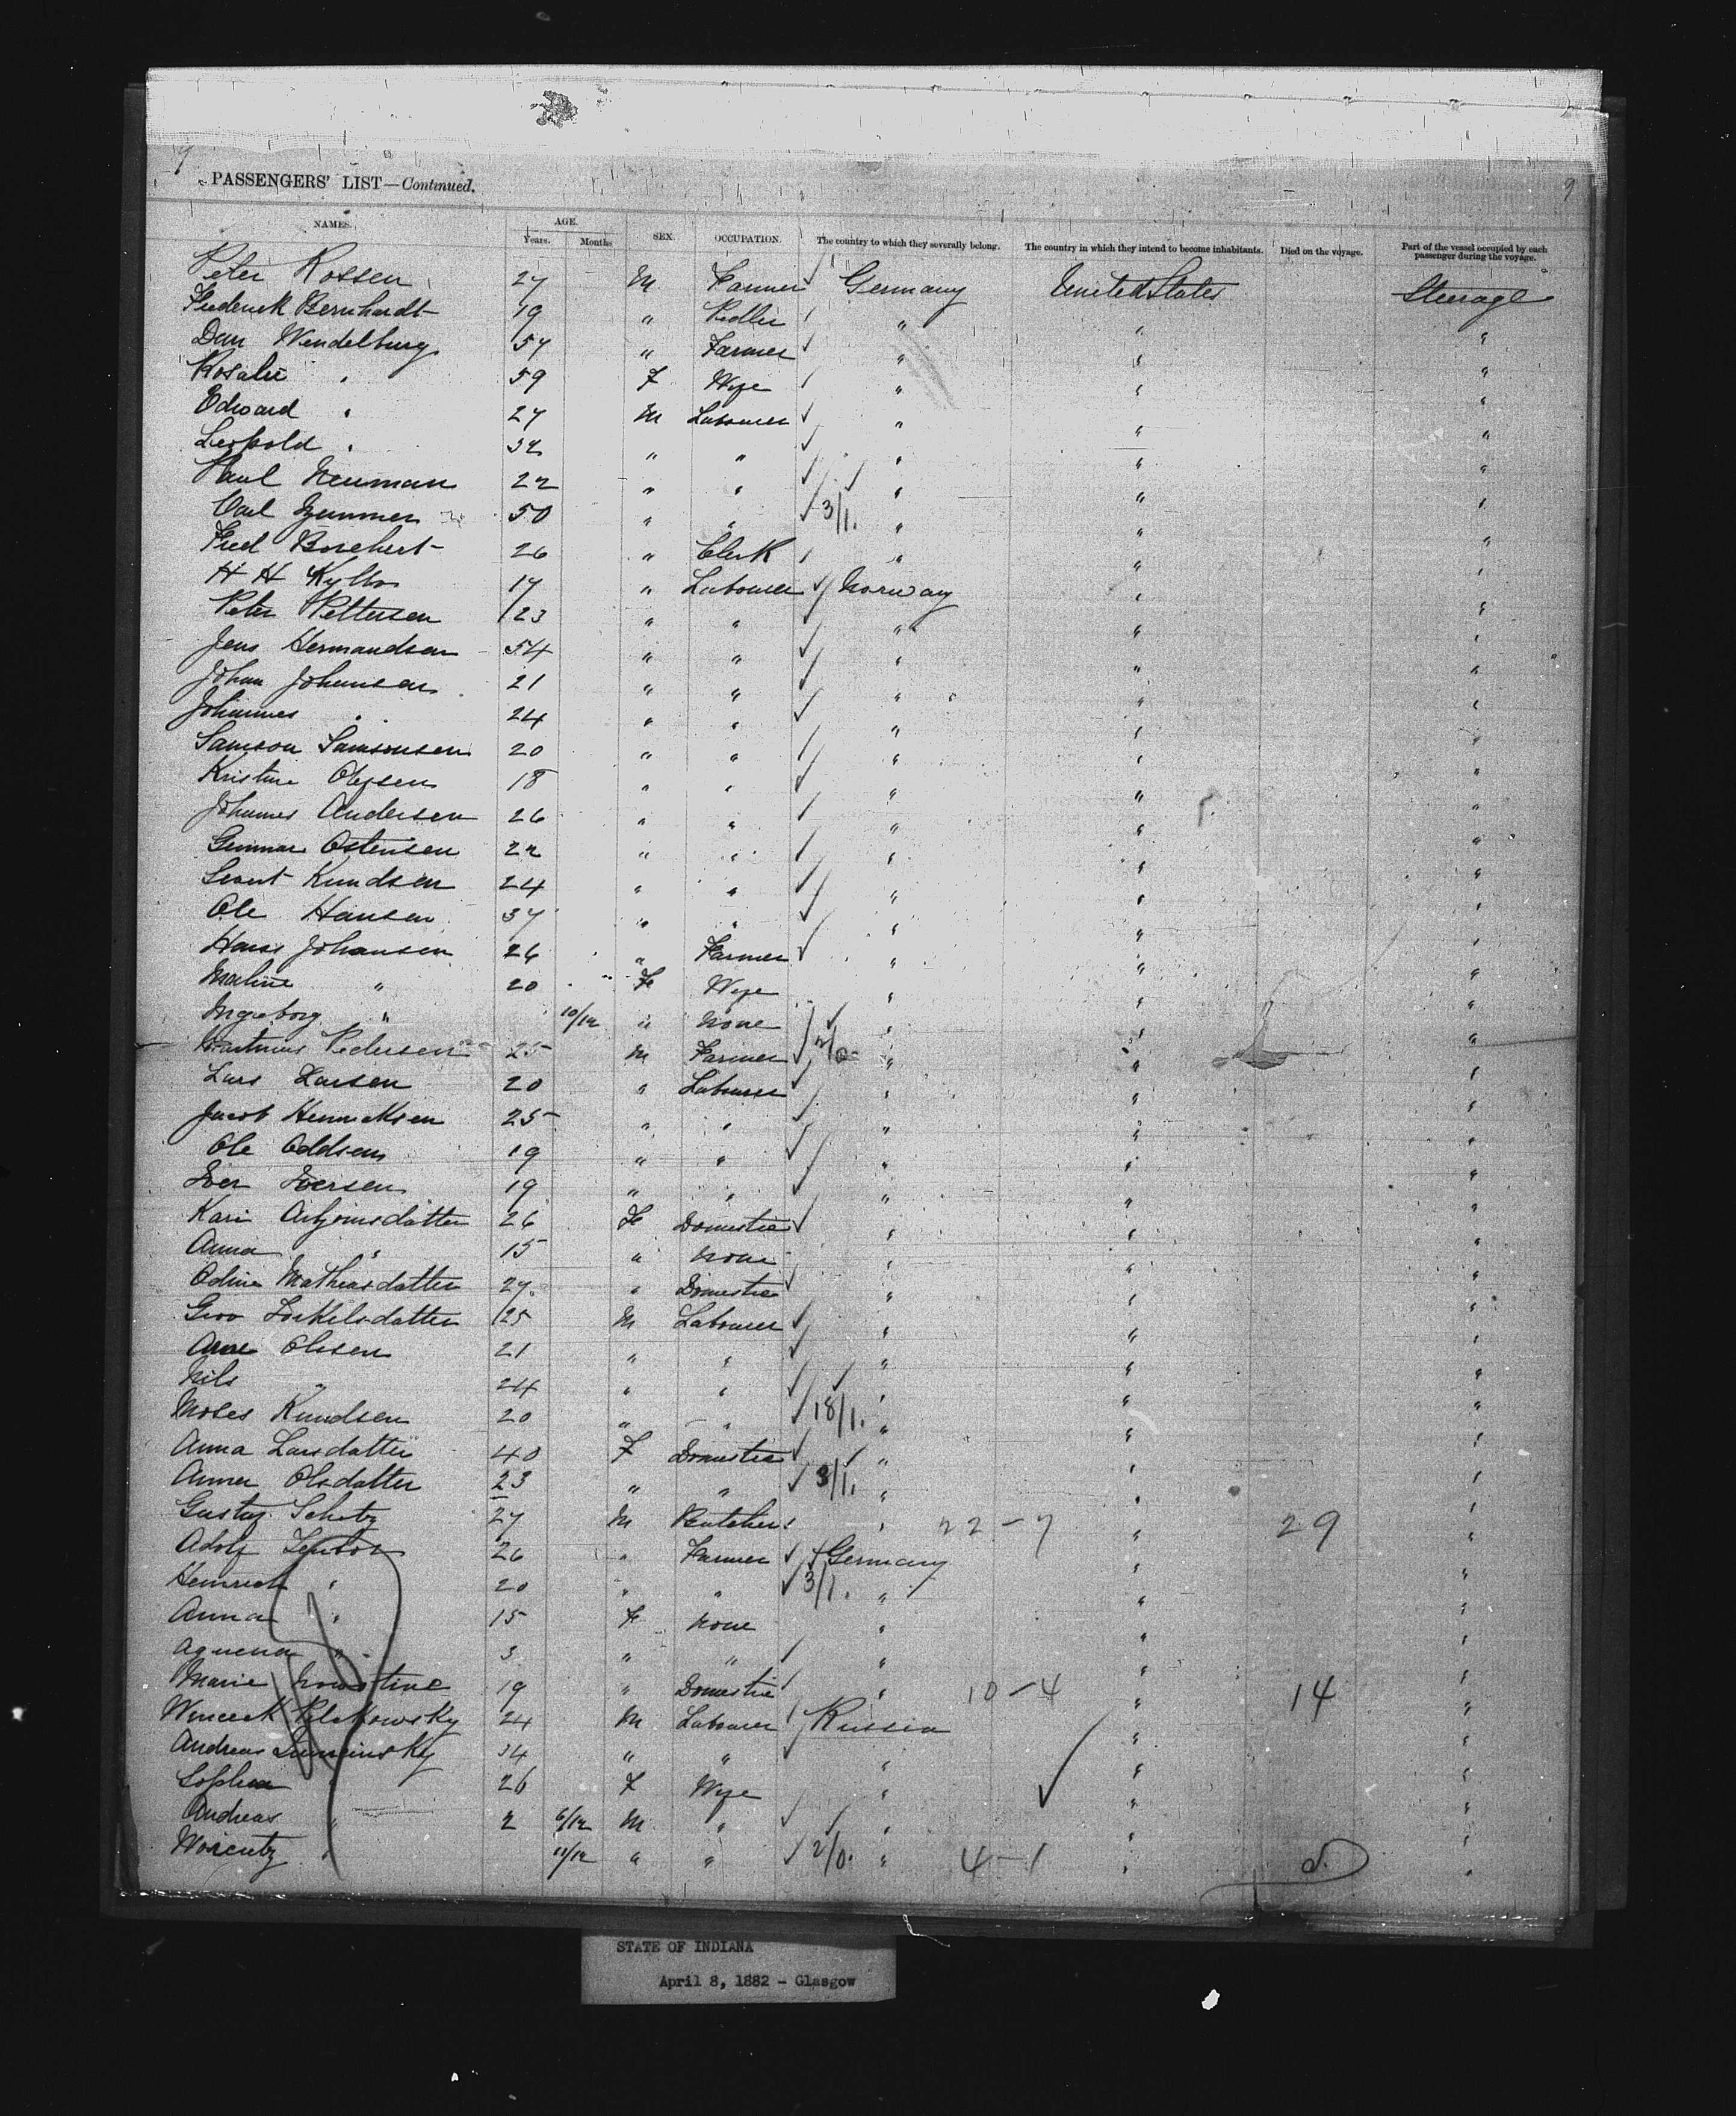 9 9
PASSENGERS' LIST—Continued.
NAMES. AGE. Years. Months SEX. OCCUPATION. The country to which they severally belong. The country in which they intend to become inhabitants. Died on the voyage. Part of the vessel occupied by each passenger during the voyage.
Peter Rossen 27 M Farmer Germany United States Steerage
Frederick Bernhardt 19 " Pedler " " "
Dan Wendelburg 57 " Farmer " " "
Rosalie " 59 F Wife " " "
Edward " 27 M Labourer " " "
Leopold " 32 " " " " "
Paul Neuman 22 " " " " "
Carl 50 " " 3/1. " " "
Fred Borchert 26 " Clerk " " "
H H Kyllo 17 " Labourer Norway " "
Peter Pettersen 23 " " " " "
Jens Hermandsen 54 " " " " "
Johan Johansen 21 " " " " "
Johannes " 24 " " " " "
Samson Samsonsen 20 " " " " "
Kristine Olsen 18 " " " " "
Johannes Andersen 26 " " " " "
Gunnar Ostensen 22 " " " " "
Knudsen 24 " " " " "
Ole Hansen 37 " " " " "
Hans Johansen 26 " Farmer " " "
Maline " 20 F Wife " " "
Ingeborg " 10/12 " None " " "
Martinus Pedersen 25 M Farmer 2/0 " " "
Lars Larsen 20 " Labourer " " "
Jacob Henricksen 25 " " " " "
Ole Oddsen 19 " " " " "
Iver Iversen 19 " " " " "
Kari 26 F Domestic " " "
Anna " 15 " None " " "
Odine Mathiasdatter 27 " Domestic " " "
Groo Torkelsdatter 25 M Labourer " " "
Arne Olesen 21 " " " " "
Nils " 24 " " " " "
Moses Knudsen 20 " " 18/1. " " "
Anna Larsdatter 40 F Domestic " " "
Anna Olsdatter 23 " " 3/1. " " "
Gustav Schutz 27 M Butcher " 22-7 " 29 "
Adolf 26 " Farmer Germany " "
Heinrich " 20 " " 3/1. " " "
Anna " 15 F None " " "
" 3 " " " " "
Marie 19 " Domestic " 10-4 " 14 "
24 M Labourer Russia " "
Andreas 34 " " " " "
Sophia " 26 F Wife " " "
Andreas " 2 6/12 M " " " "
" 11/12 " " 2/0. " 4-1 " "
STATE OF INDIANA
April 8, 1882 - Glasgow